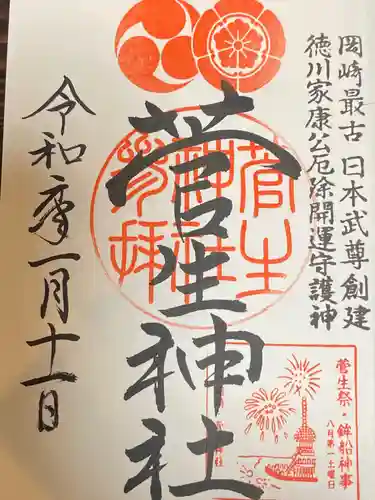 岡崎最古 日本武尊創建
徳川家康公厄除開運守護神
菅生神社
令和六年一月十一日
菅生祭・鉾船神事
八月第一土曜日